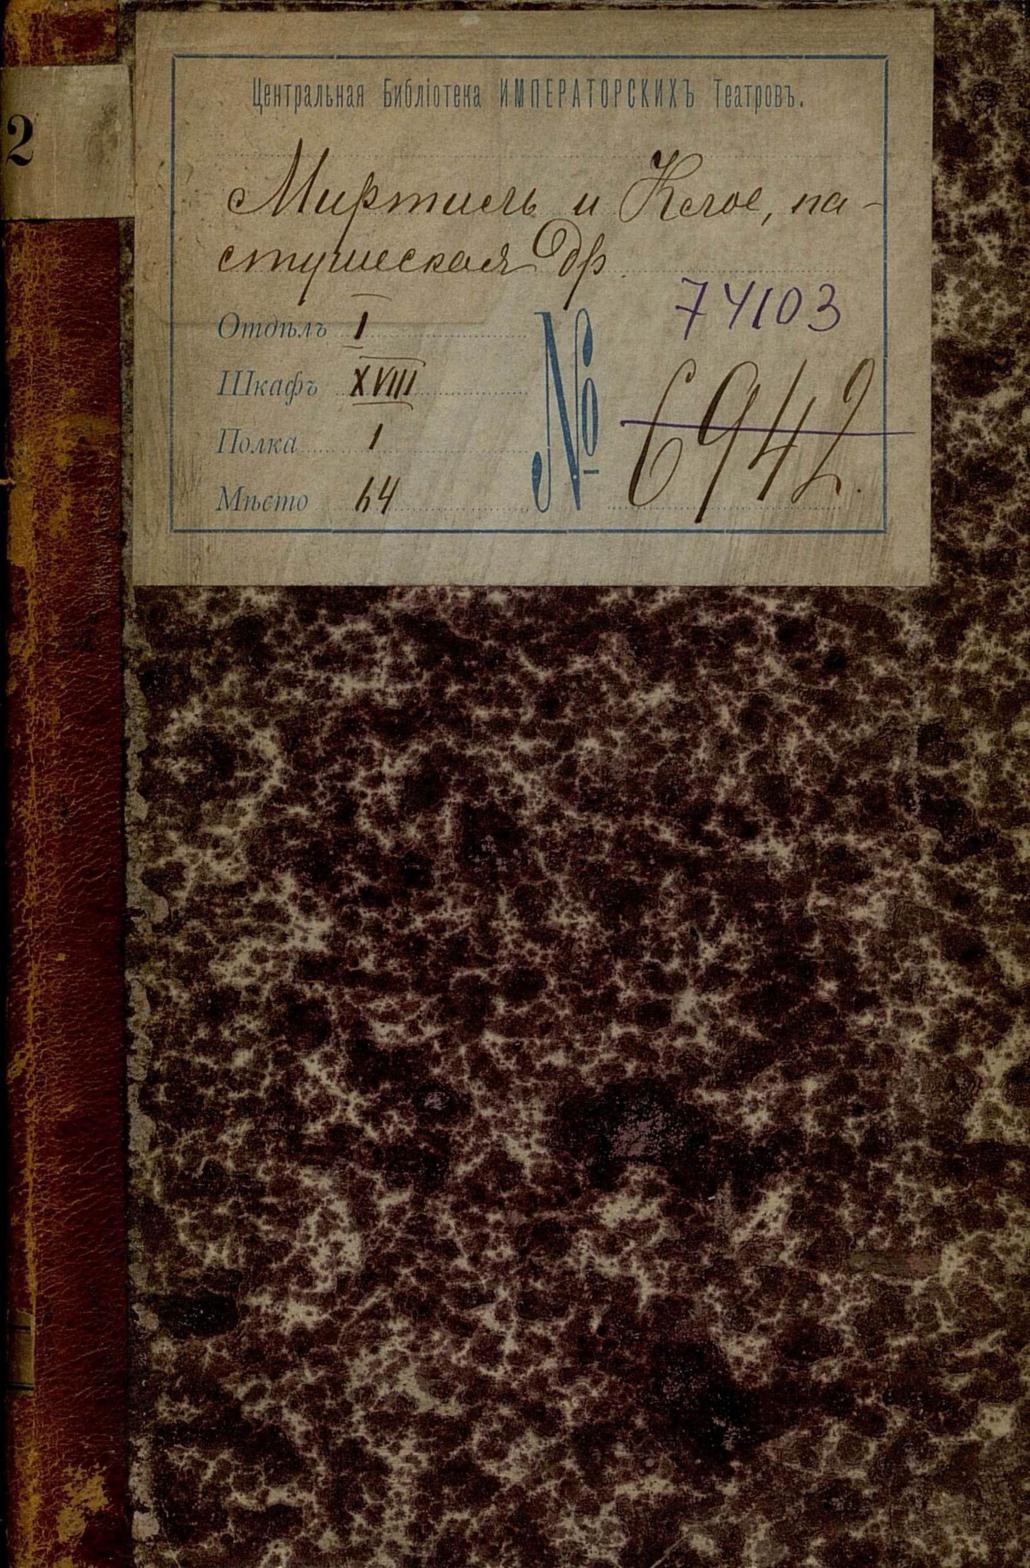 Центральная Библіотека ИМПЕРАТОРСКИХЪ Театровъ.
Миртилъ и Клоэ, па-
стушеская Др.
74103
Отдѣлъ I
Шкафъ XVIII
Полка 1
Мѣсто 64
№ 6942
2